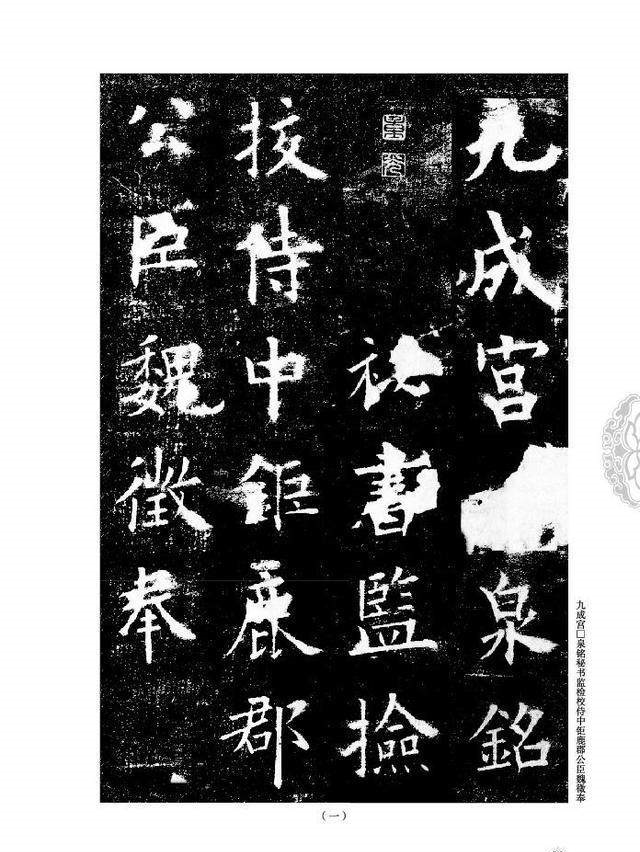 九成宮泉銘
祕書監撿
挍侍中鉅鹿郡
公臣魏徵奉
九成宫□泉铭秘书监检校侍中钜鹿郡公臣魏徵奉
（一）